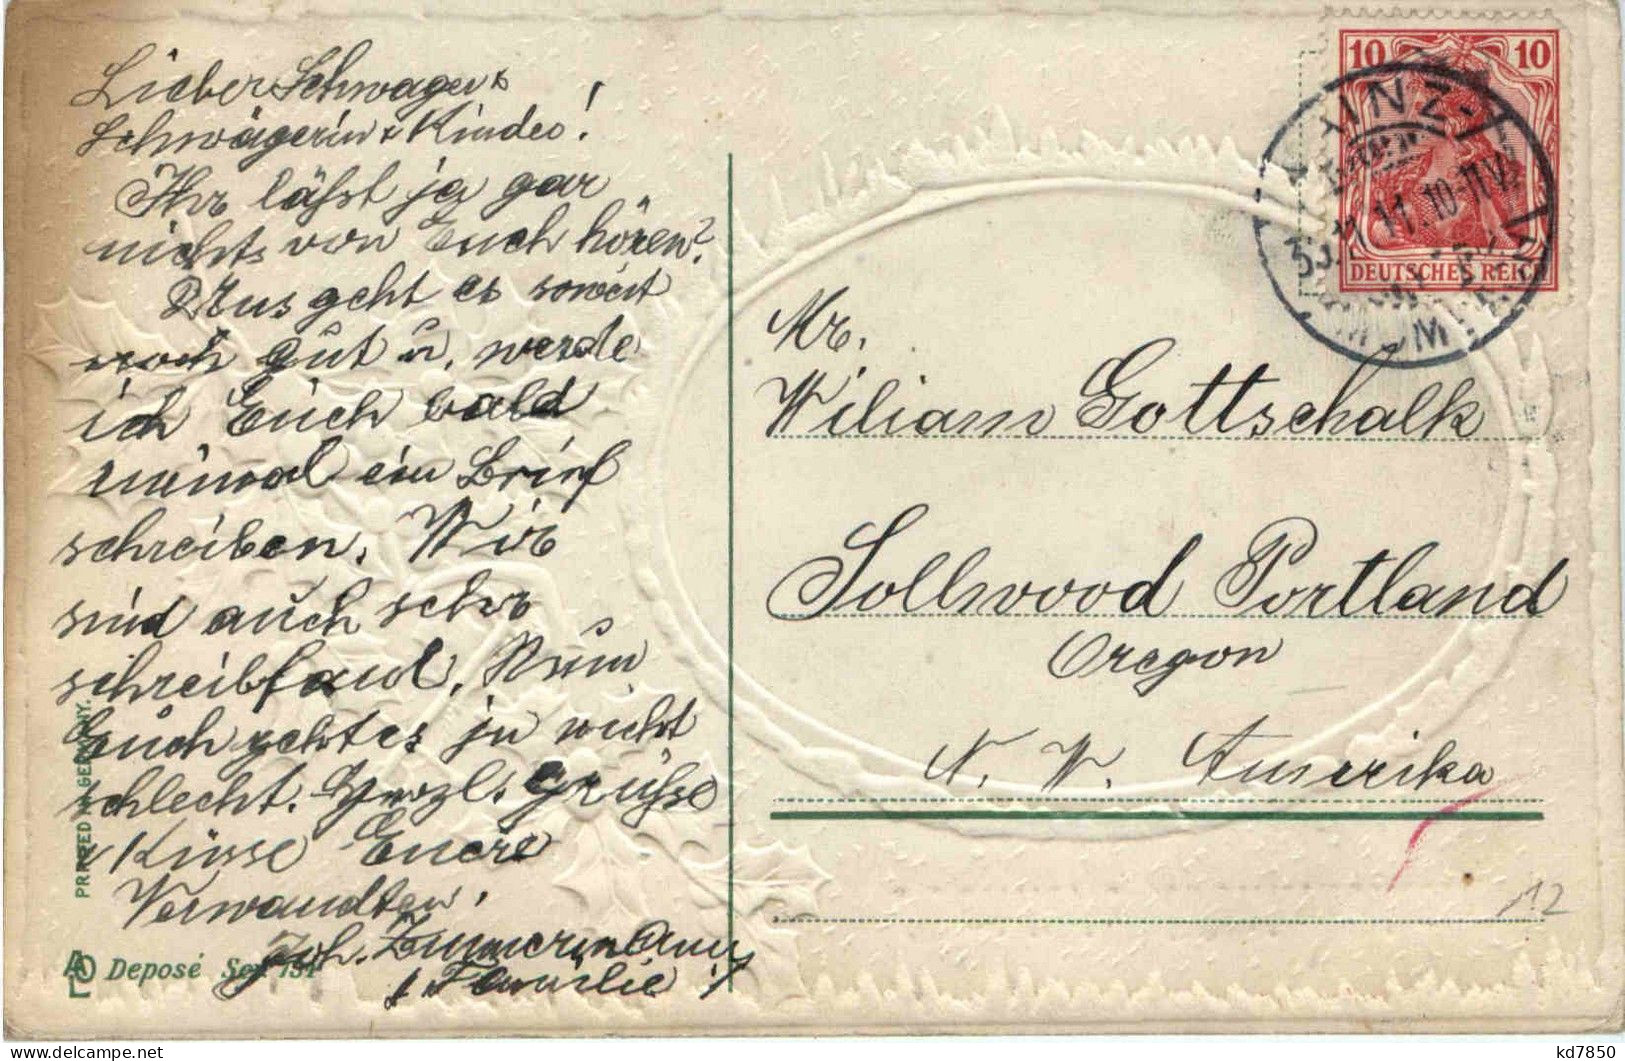 Lieber Schwager &
Schwägerin & Kinder!
Ihr läßt ja gar
nichts von Euch hören?
Uns geht es soweit
noch gut u. werde
ich Euch bald
einmal ein Brief
schreiben. Wir
sind auch sehr
schreibfaul. Nun
Euch geht es ja nicht
schlecht. Herzl. Grüße
& Küsse Euere
Verwandten,
Joh. Zimmermann
& Familie
PRINTED IN GERMANY.
Deposé Ser 151
10 10
DEUTSCHES REICH
MAINZ
11.11.10-11V.
Mr.
Wiliam Gottschalk
Sollwood Portland
Oregon
N. W. Amerika
12
kd7850